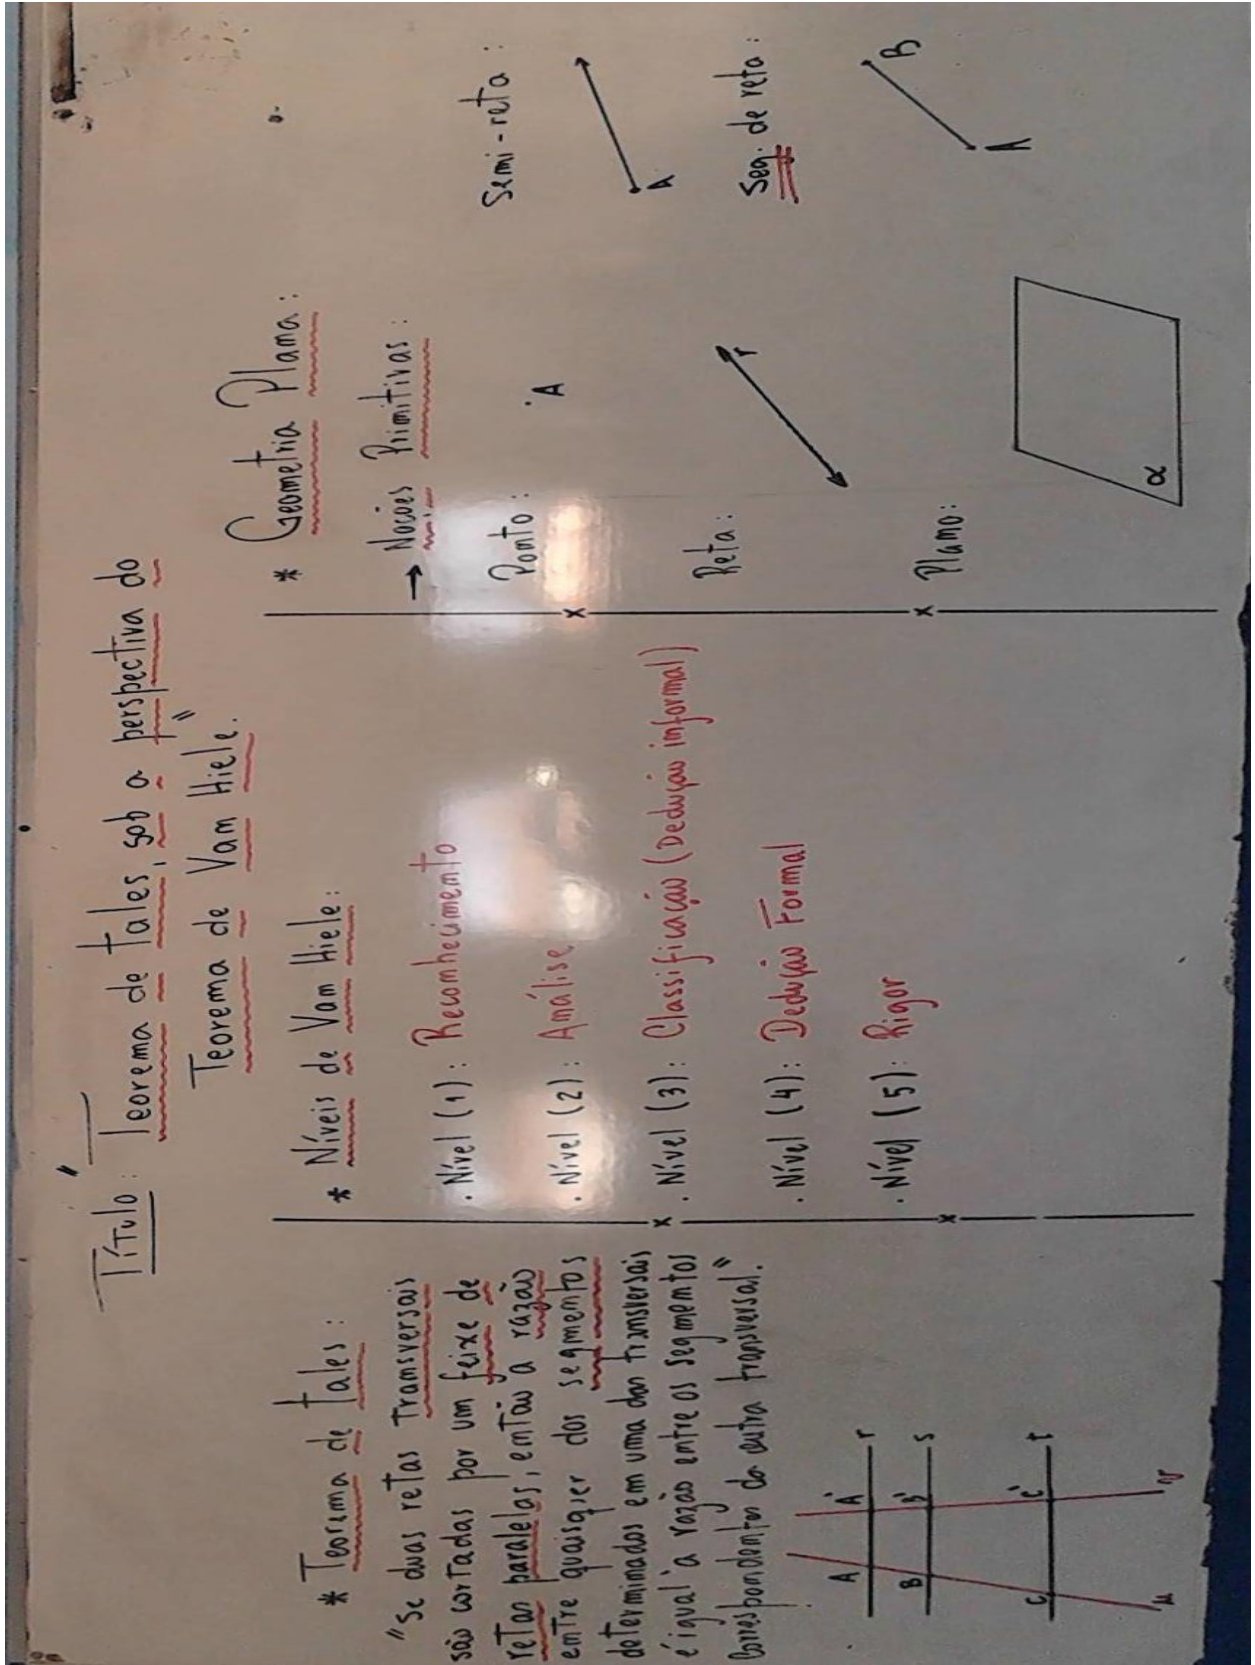 Título: "Teorema de Tales, sob a perspectiva do
Teorema de Van Hiele."
* Teorema de Tales:
"Se duas retas transversais
são cortadas por um feixe de
retas paralelas, então a razão
entre quaisquer dos segmentos
determinados em uma das transversais
é igual a razão entre os segmentos
correspondentes da outra transversal."
A A' r
B B' s
C C' t
u v
* Níveis de Van Hiele:
. Nível (1): Reconhecimento
. Nível (2): Análise
. Nível (3): Classificação (Dedução informal)
. Nível (4): Dedução Formal
. Nível (5): Rigor
* Geometria Plana:
→ Noções Primitivas:
Ponto: . A
Reta: r
Plano:
α
Semi-reta:
A
Seg. de reta:
A B